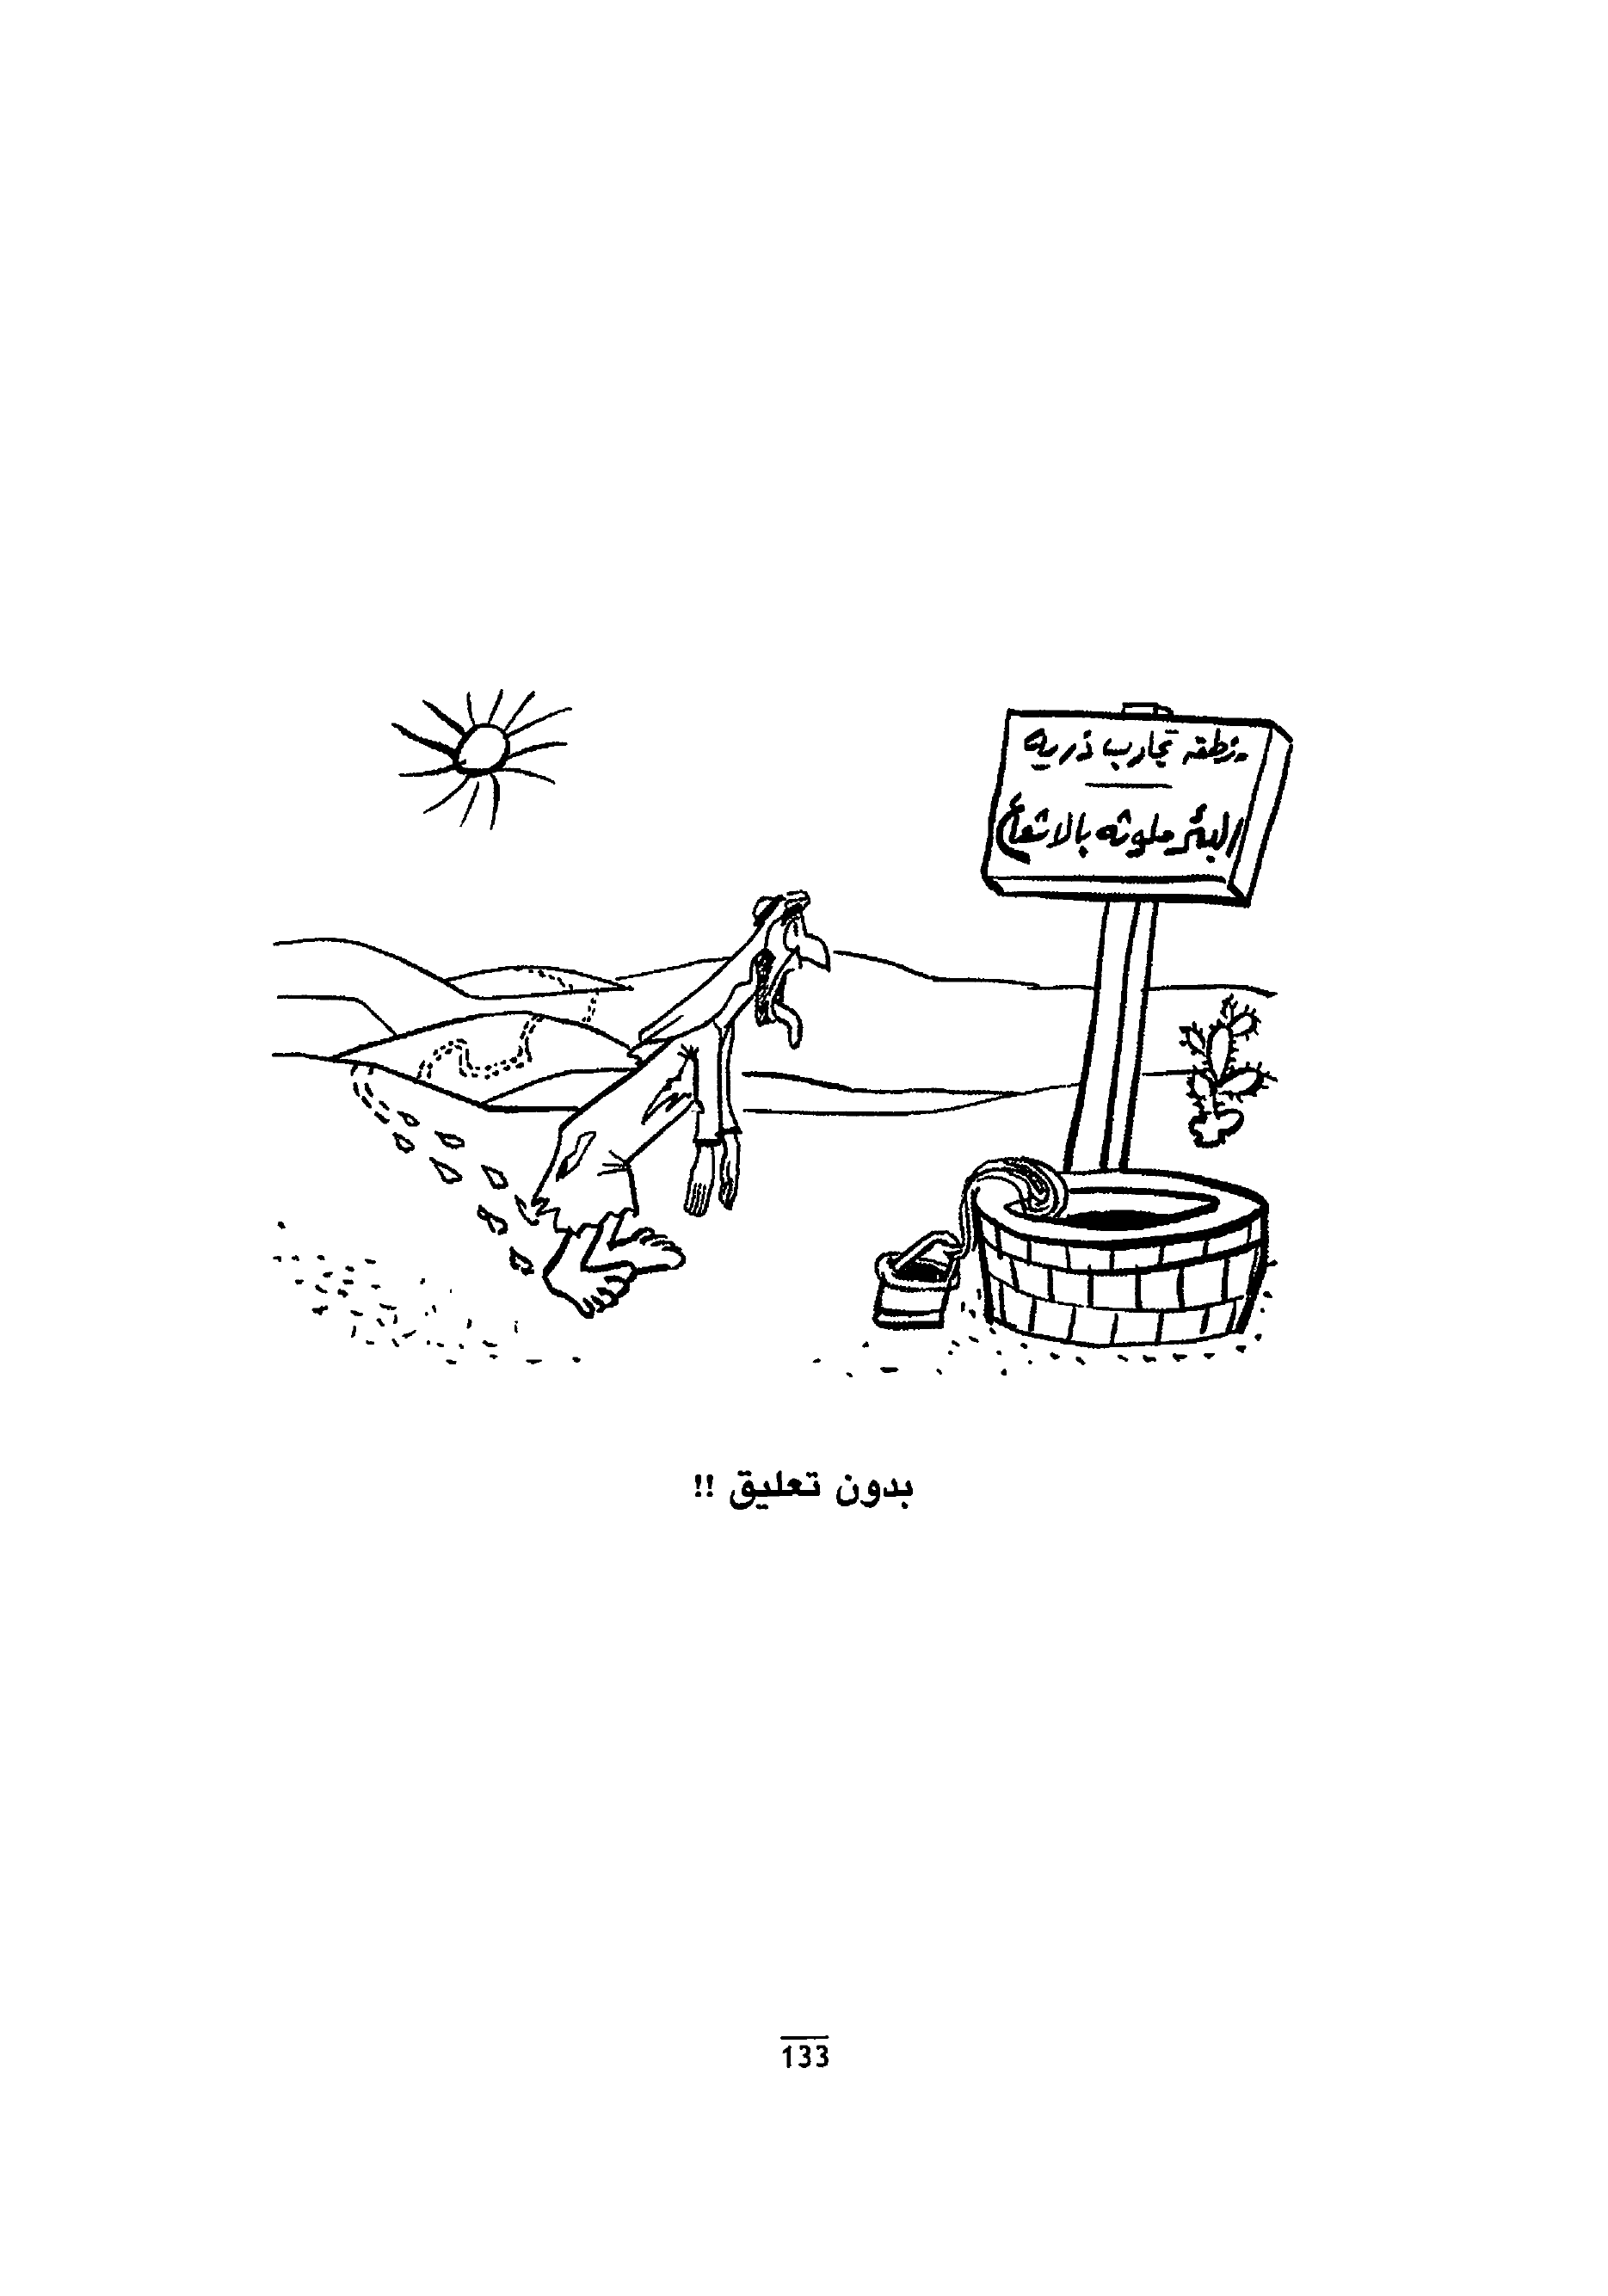 منطقه تجارب ذريه
البئر ملوثه بالاشعاع
بدون تعليق !!
133